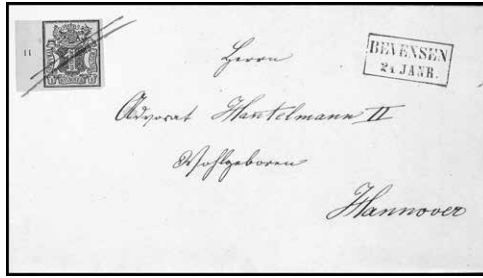 11
BEVENSEN
21 JANR.
Herrn
Advocat Hantelmann II
Wohlgeboren
Hannover